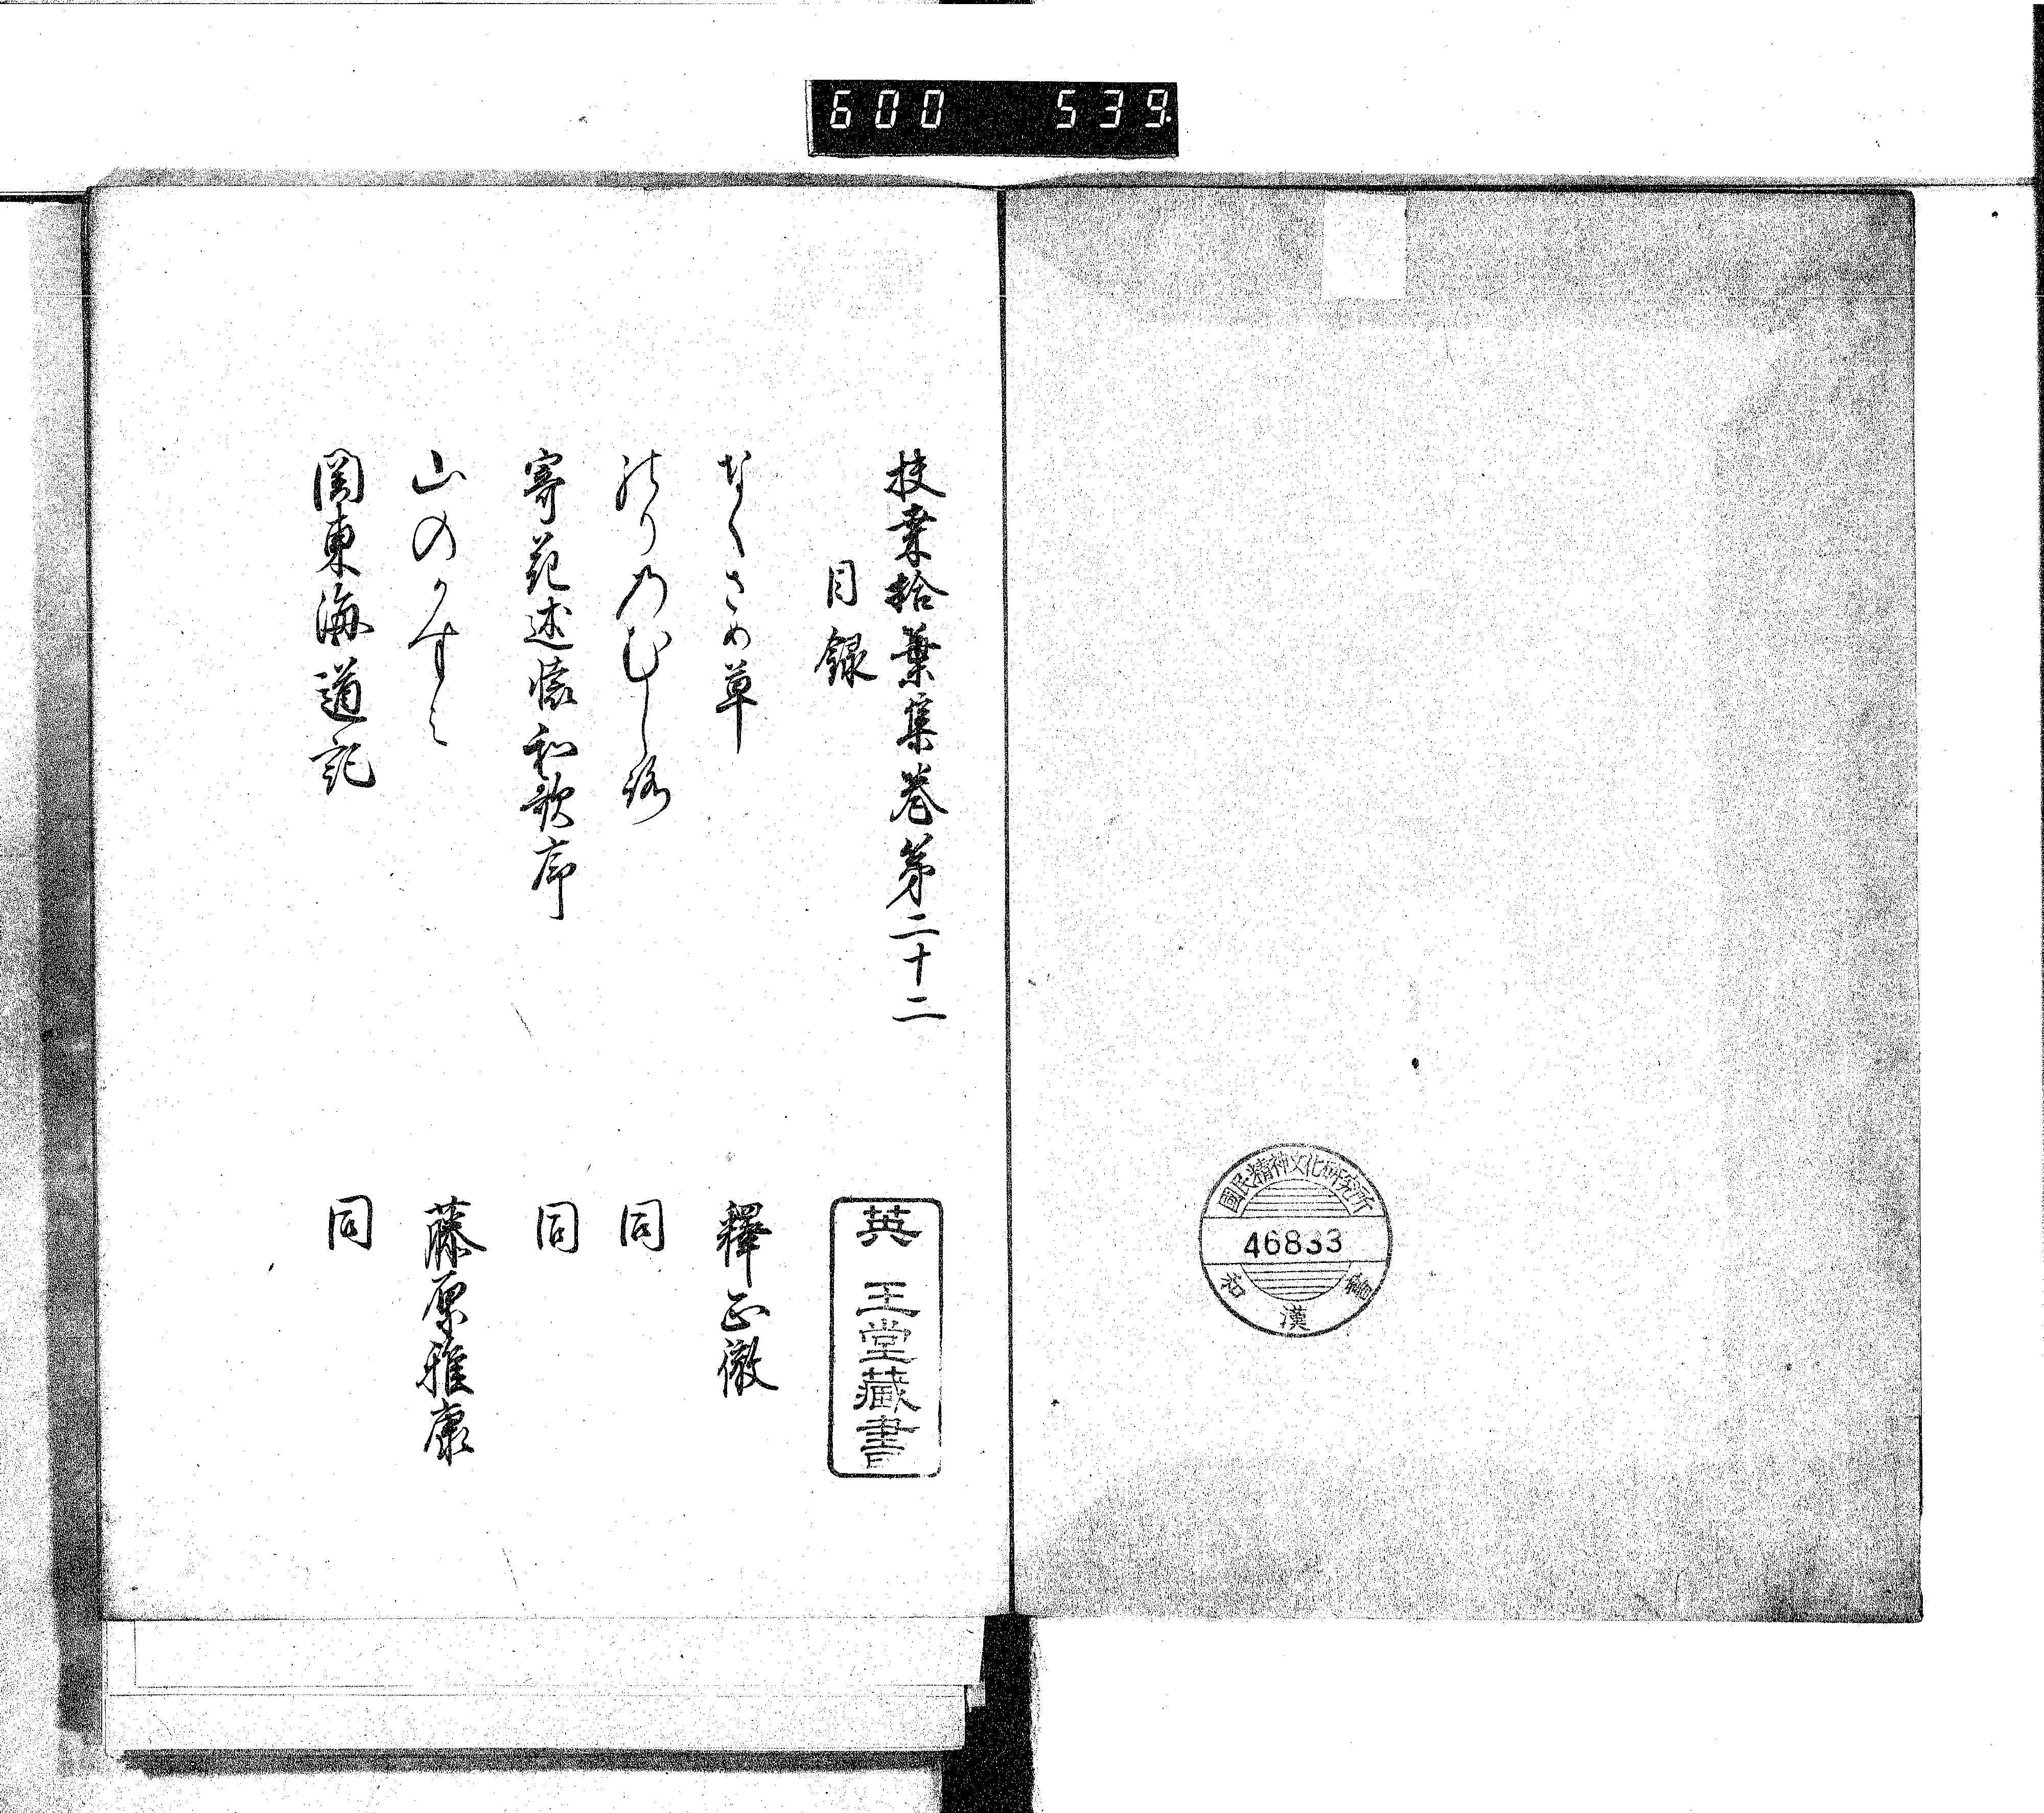 600 539
國民精神文化研究所
46833
和漢書
扶桒拾葉集巻第二十二
目録
なくさめ草 釋正徹
のりのむしろ 同
寄花述懐和歌序 同
山のかすみ 藤原雅康
関東海道記 同
英 王堂藏書